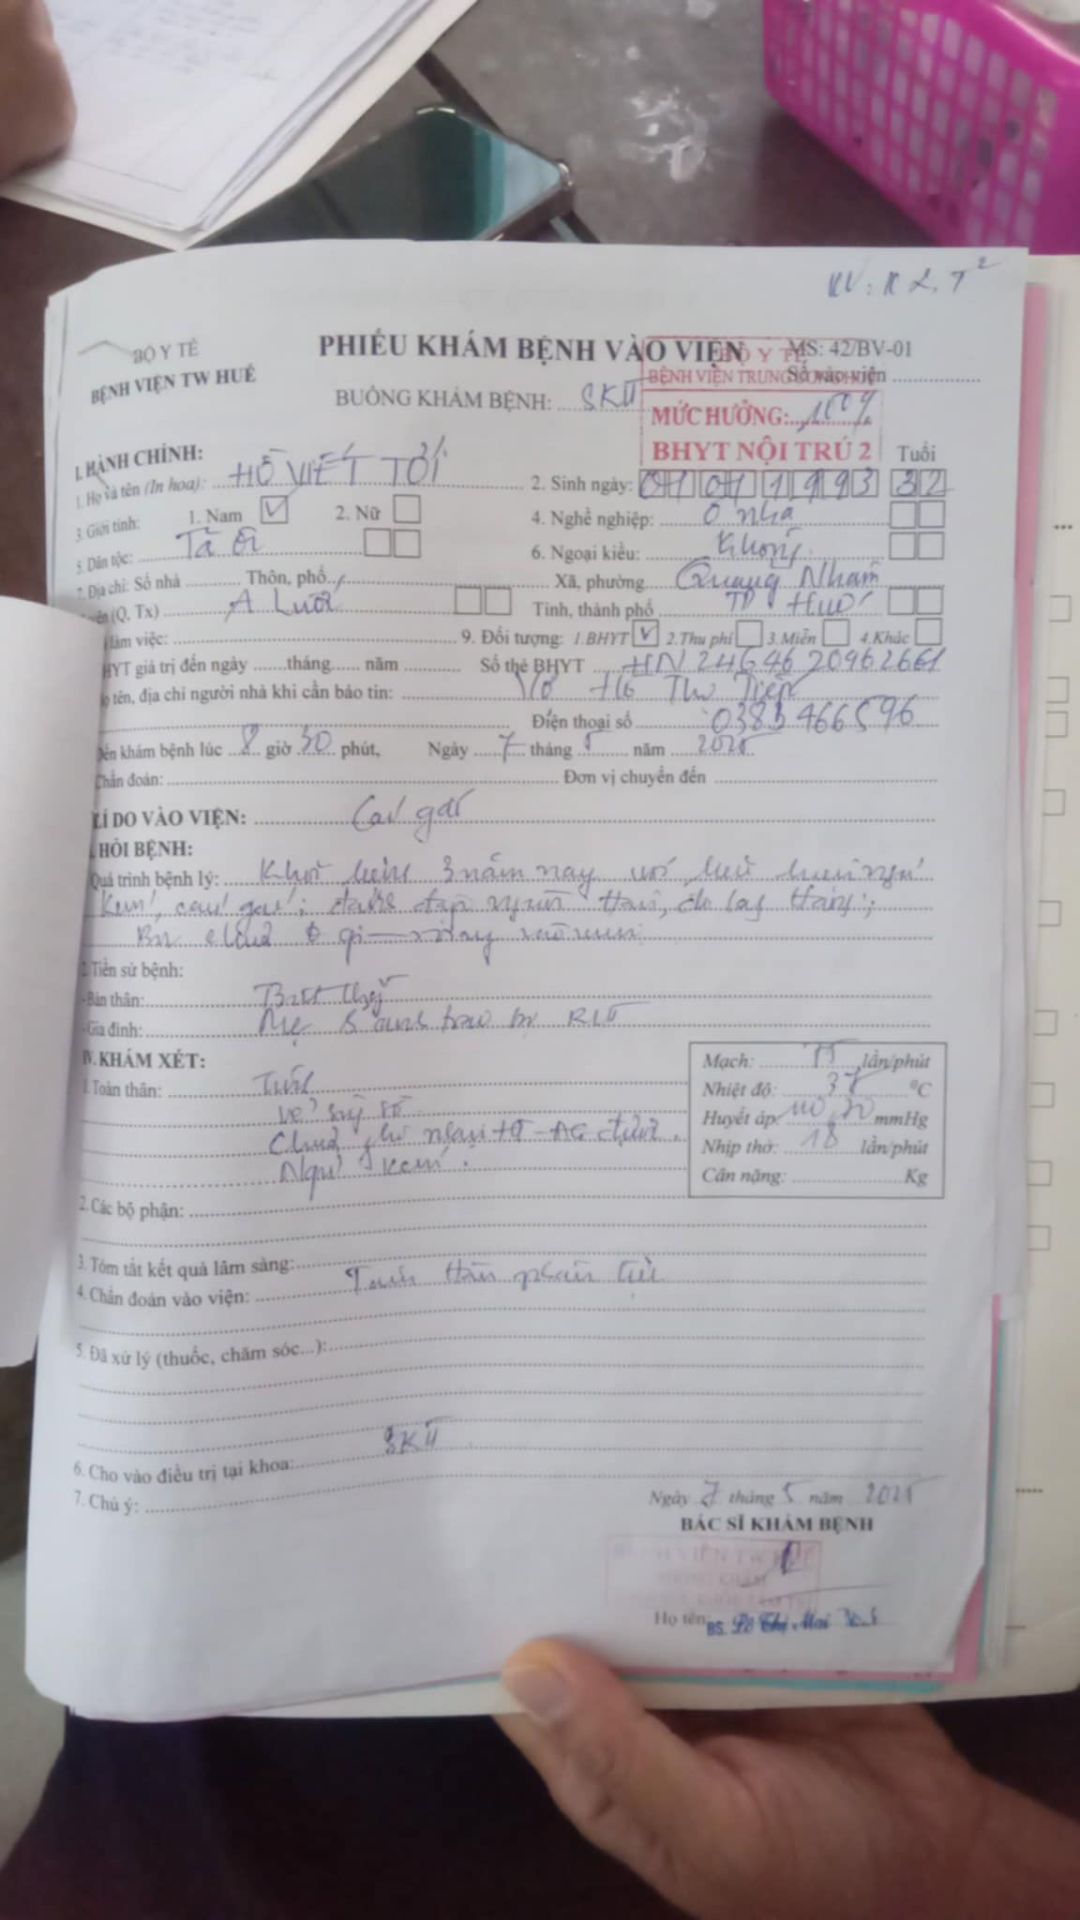 KV: K2, T²
BỘ Y TẾ
BỆNH VIỆN TW HUẾ
PHIẾU KHÁM BỆNH VÀO VIỆN
MS: 42/BV-01
Số vào viện
BỘ Y TẾ
BỆNH VIỆN TRUNG
BUỒNG KHÁM BỆNH: SKTT
MỨC HƯỞNG: 100%
BHYT NỘI TRÚ 2
I. HÀNH CHÍNH:
Tuổi
1. Họ và tên (In hoa): HỒ VIẾT TỚI
2. Sinh ngày: 01 01 1993 32
3. Giới tính: 1. Nam ☑ 2. Nữ ☐
4. Nghề nghiệp: Ở nhà
5. Dân tộc: Tà ôi
6. Ngoại kiều: Không
7. Địa chỉ: Số nhà Thôn, phố Xã, phường Quảng Nhâm
(Q. Tx) A Lưới Tỉnh, thành phố TP Huế
làm việc: 9. Đối tượng: 1.BHYT ☑ 2.Thu phí ☐ 3.Miễn ☐ 4.Khác ☐
HYT giá trị đến ngày tháng năm Số thẻ BHYT HN 2464620962661
tên, địa chỉ người nhà khi cần báo tin: Vợ Hồ Thị
Điện thoại số 0383466596
Đến khám bệnh lúc 8 giờ 30 phút, Ngày 7 tháng 5 năm 2025
Chẩn đoán: Đơn vị chuyển đến
LÍ DO VÀO VIỆN: Cáu gắt
HỎI BỆNH:
Quá trình bệnh lý: Khởi bệnh 3 năm nay với ngủ
kém, cáu gắt; đánh đập người thân, đo lang thang;
BN chưa gì nay vào viện
2. Tiền sử bệnh:
- Bản thân:
- Gia đình: Mẹ
IV. KHÁM XÉT:
1. Toàn thân: Tỉnh
Chưa ghi nhận HT - AG được.
Ngủ kém.
Mạch: 75 lần/phút
Nhiệt độ: 37 ⁰C
Huyết áp: 110/70 mmHg
Nhịp thở: 18 lần/phút
Cân nặng: Kg
2. Các bộ phận:
3. Tóm tắt kết quả lâm sàng:
4. Chẩn đoán vào viện: Tâm thần phân liệt
5. Đã xử lý (thuốc, chăm sóc...):
6. Cho vào điều trị tại khoa: SKTT
7. Chú ý:
Ngày 7 tháng 5 năm 2025
BÁC SĨ KHÁM BỆNH
BỆNH VIỆN TW HUẾ
Họ tên: BS. Thị Mai